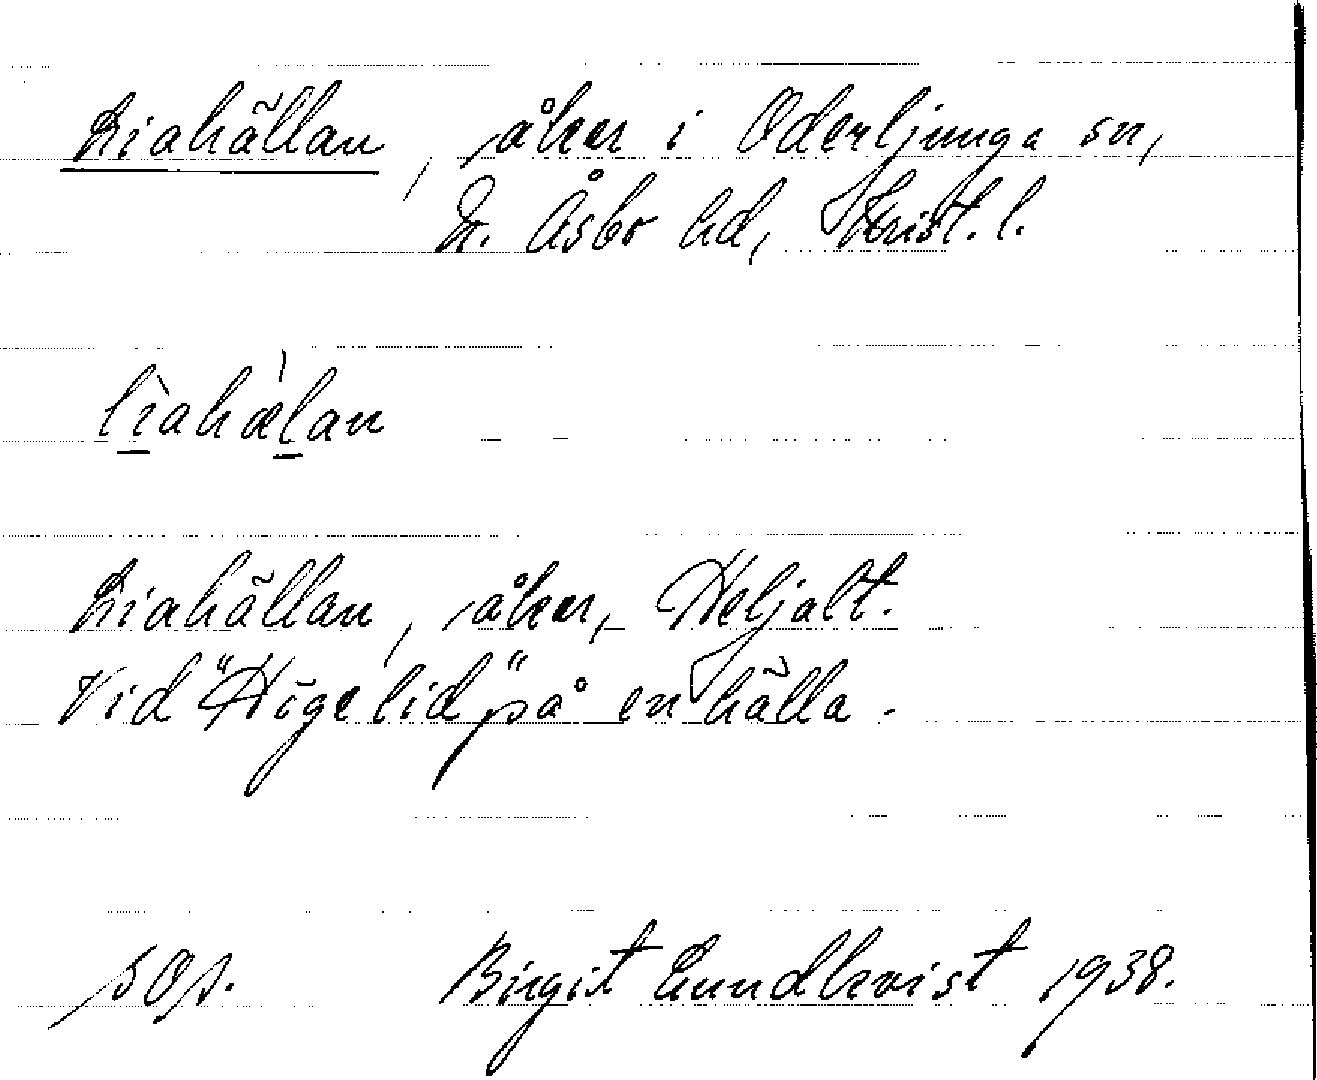 Liahällan, åker i Oderljunga sn,
N. Åsbo hd, Krist. l.
lìahæ̀lan
Liahällan, åker, Heljalt.
Vid "Högelid" på en hälla.
Birgit Lundkvist 1938.